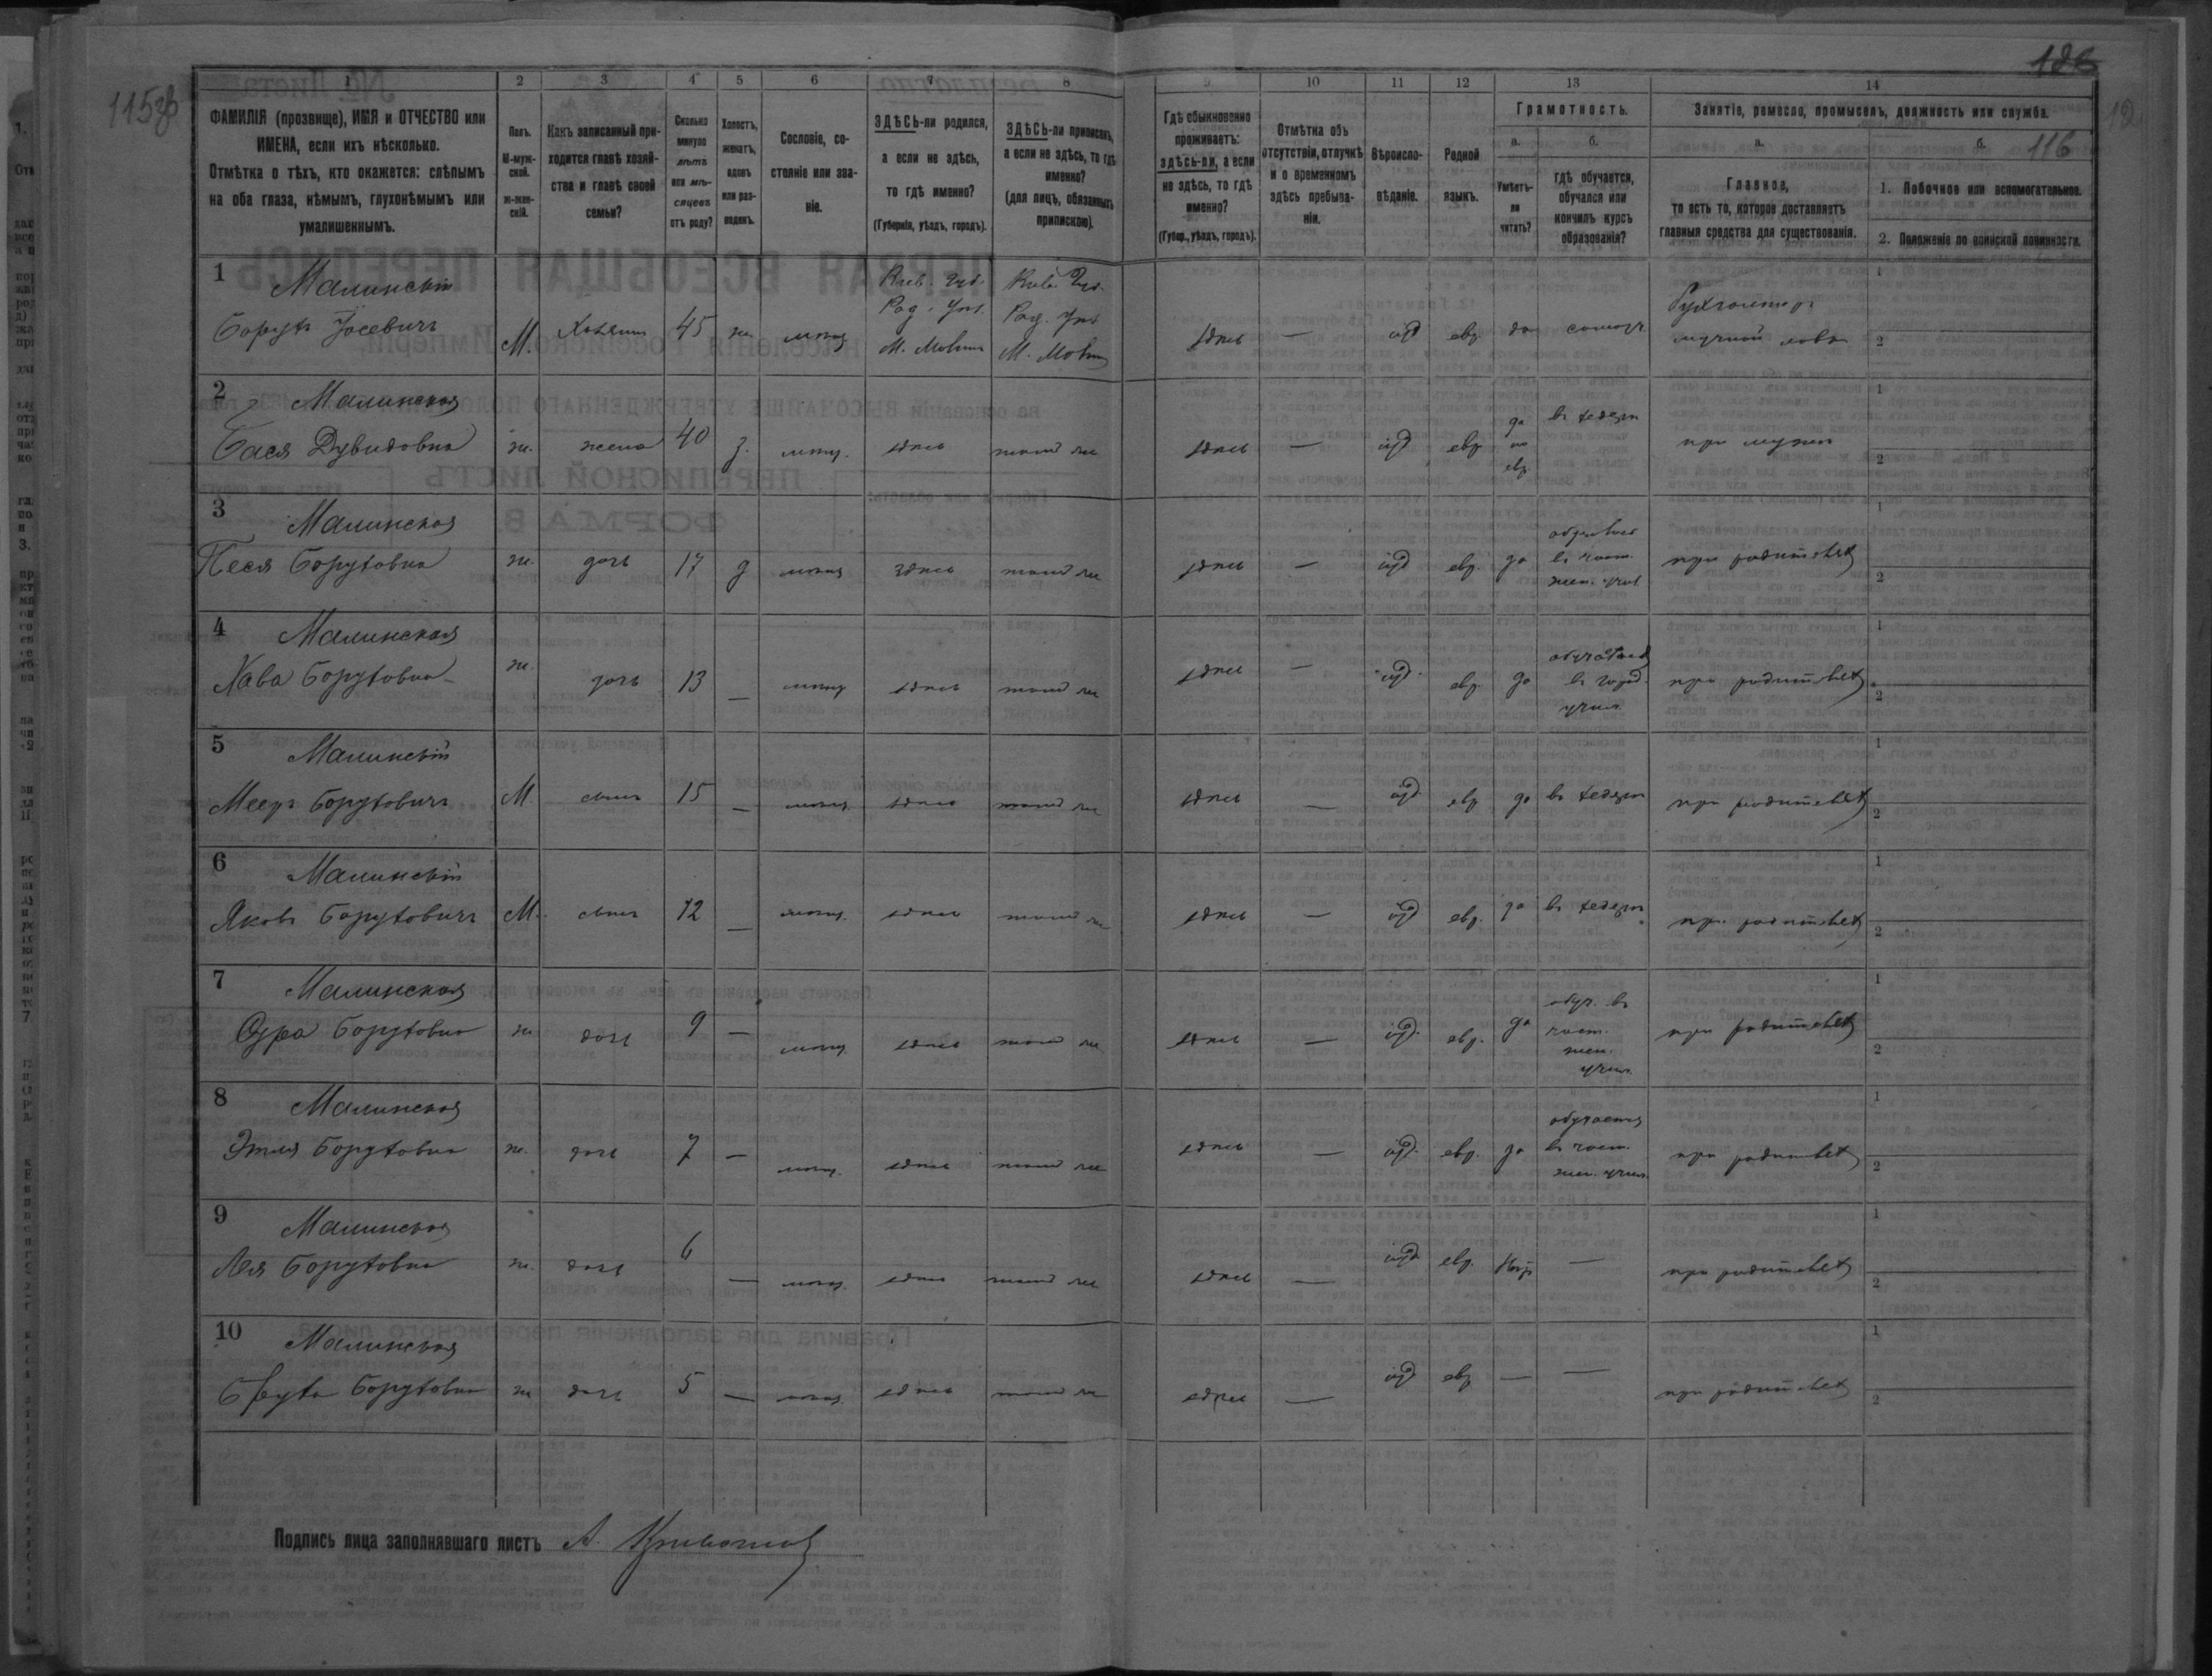 115 об
126
116
1 2 3 4 5 6 7 8 9 10 11 12 13 14
ФАМИЛІЯ (прозвище), ИМЯ и ОТЧЕСТВО или
ИМЕНА, если ихъ нѣсколько.
Отмѣтка о тѣхъ, кто окажется: слѣпымъ
на оба глаза, нѣмымъ, глухонѣмымъ или
умалишеннымъ.
Полъ.
М-муж-
ской.
ж-жен-
скій.
Какъ записанный при-
ходится главѣ хозяй-
ства и главѣ своей
семьи?
Сколько
минуло
лѣтъ
или мѣ-
сяцевъ
отъ роду?
Холостъ,
женатъ,
вдовъ
или раз-
веденъ.
Сословіе, со-
стояніе или зва-
ніе.
ЗДѢСЬ-ли родился,
а если не здѣсь,
то гдѣ именно?
(Губернія, уѣздъ, городъ).
ЗДѢСЬ-ли приписанъ,
а если не здѣсь, то гдѣ
именно?
(для лицъ, обязанныхъ
припискою).
Гдѣ обыкновенно
проживаетъ:
здѣсь-ли, а если
не здѣсь, то гдѣ
именно?
(Губер., уѣздъ, городъ).
Отмѣтка объ
отсутствіи, отлучкѣ
и о временномъ
здѣсь пребыва-
ніи.
Вѣроиспо-
вѣданіе.
Родной
языкъ.
Грамотность.
а.
Умѣетъ-
ли
читать?
б.
гдѣ обучается,
обучался или
кончилъ курсъ
образованія?
Занятіе, ремесло, промыселъ, должность или служба.
а.
Главное,
то есть то, которое доставляетъ
главныя средства для существованія.
б.
1. Побочное или вспомогательное.
2. Положеніе по воинской повинности.
1 Малинскій
Борухъ Іосевичъ М. Хозяинъ 45 ж. мѣщ
Кіев. Губ.
Рад. Уѣз.
М. Мовин
Кіев. Губ.
Рад. Уѣз
М. Мовин
здѣсь — іуд евр. да
Бухгалтеръ
мучной лавк
1
2
2 Малинская
Бася Дувидовна ж. жена 40 з. мѣщ. здѣсь тамъ же здѣсь — іуд евр
да
по
евр.
въ хедерѣ при мужѣ
1
2
3 Малинская
Песя Боруховна ж. дочь 17 д мѣщ здѣсь тамъ же здѣсь — іуд евр. да
въ част.
жен. учил
при родителяхъ
1
2
4 Малинская
Хава Боруховна ж. дочь 13 — мѣщ здѣсь тамъ же здѣсь — іуд. евр. да
обучалась
въ город.
учил.
при родителяхъ
1
2
5 Малинскій
Мееръ Боруховичъ М. сынъ 15 — мѣщ здѣсь тамъ же здѣсь — іуд евр. да въ хедерѣ при родителяхъ
1
2
6 Малинскій
Яковъ Боруховичъ М. сынъ 12 — мѣщ. здѣсь тамъ же здѣсь — іуд евр. да въ хедерѣ при родителяхъ
1
2
7 Малинская
Боруховна ж. дочь 9 — мѣщ. здѣсь тамъ же здѣсь — іуд. евр. да
обуч. въ
част.
жен.
учил.
при родителяхъ
1
2
8 Малинская
Этля Боруховна ж. дочь 7 — мѣщ. здѣсь тамъ же здѣсь — іуд. евр. да
обучается
въ част.
жен. учил.
при родителяхъ
1
2
9 Малинская
Лея Боруховна ж. дочь 6 — мѣщ. здѣсь тамъ же здѣсь — іуд евр. —
при родителяхъ
1
2
10 Малинская
Боруховна ж дочь 5 — мѣщ. здѣсь тамъ же здѣсь — іуд евр — —
при родителяхъ
1
2
Подпись лица заполнявшаго листъ А.